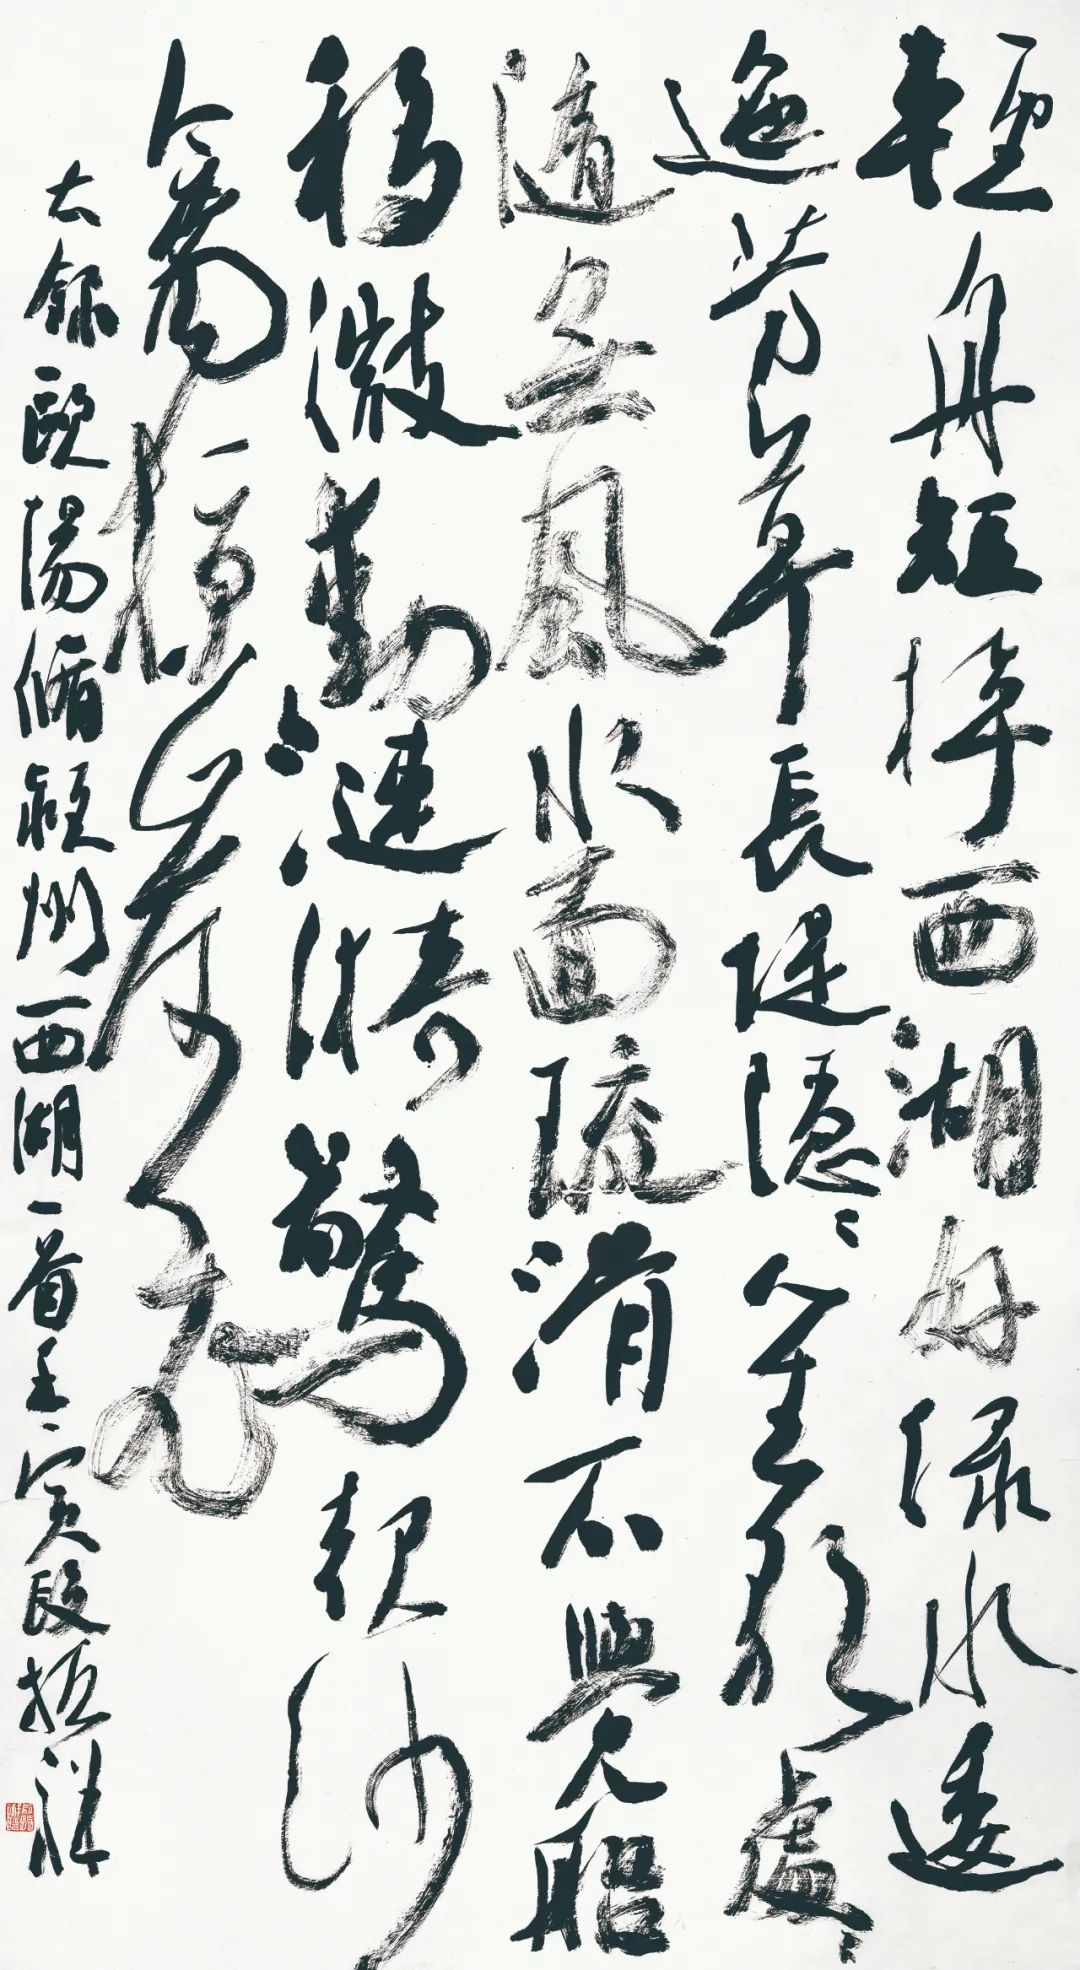 輕舟短棹西湖好綠水逶
迤芳草長堤隱隱笙歌處處
隨無風水面琉滑不覺船
移微動漣漪驚起沙
禽掠岸飛
右錄歐陽脩潁州西湖一首壬寅段祥